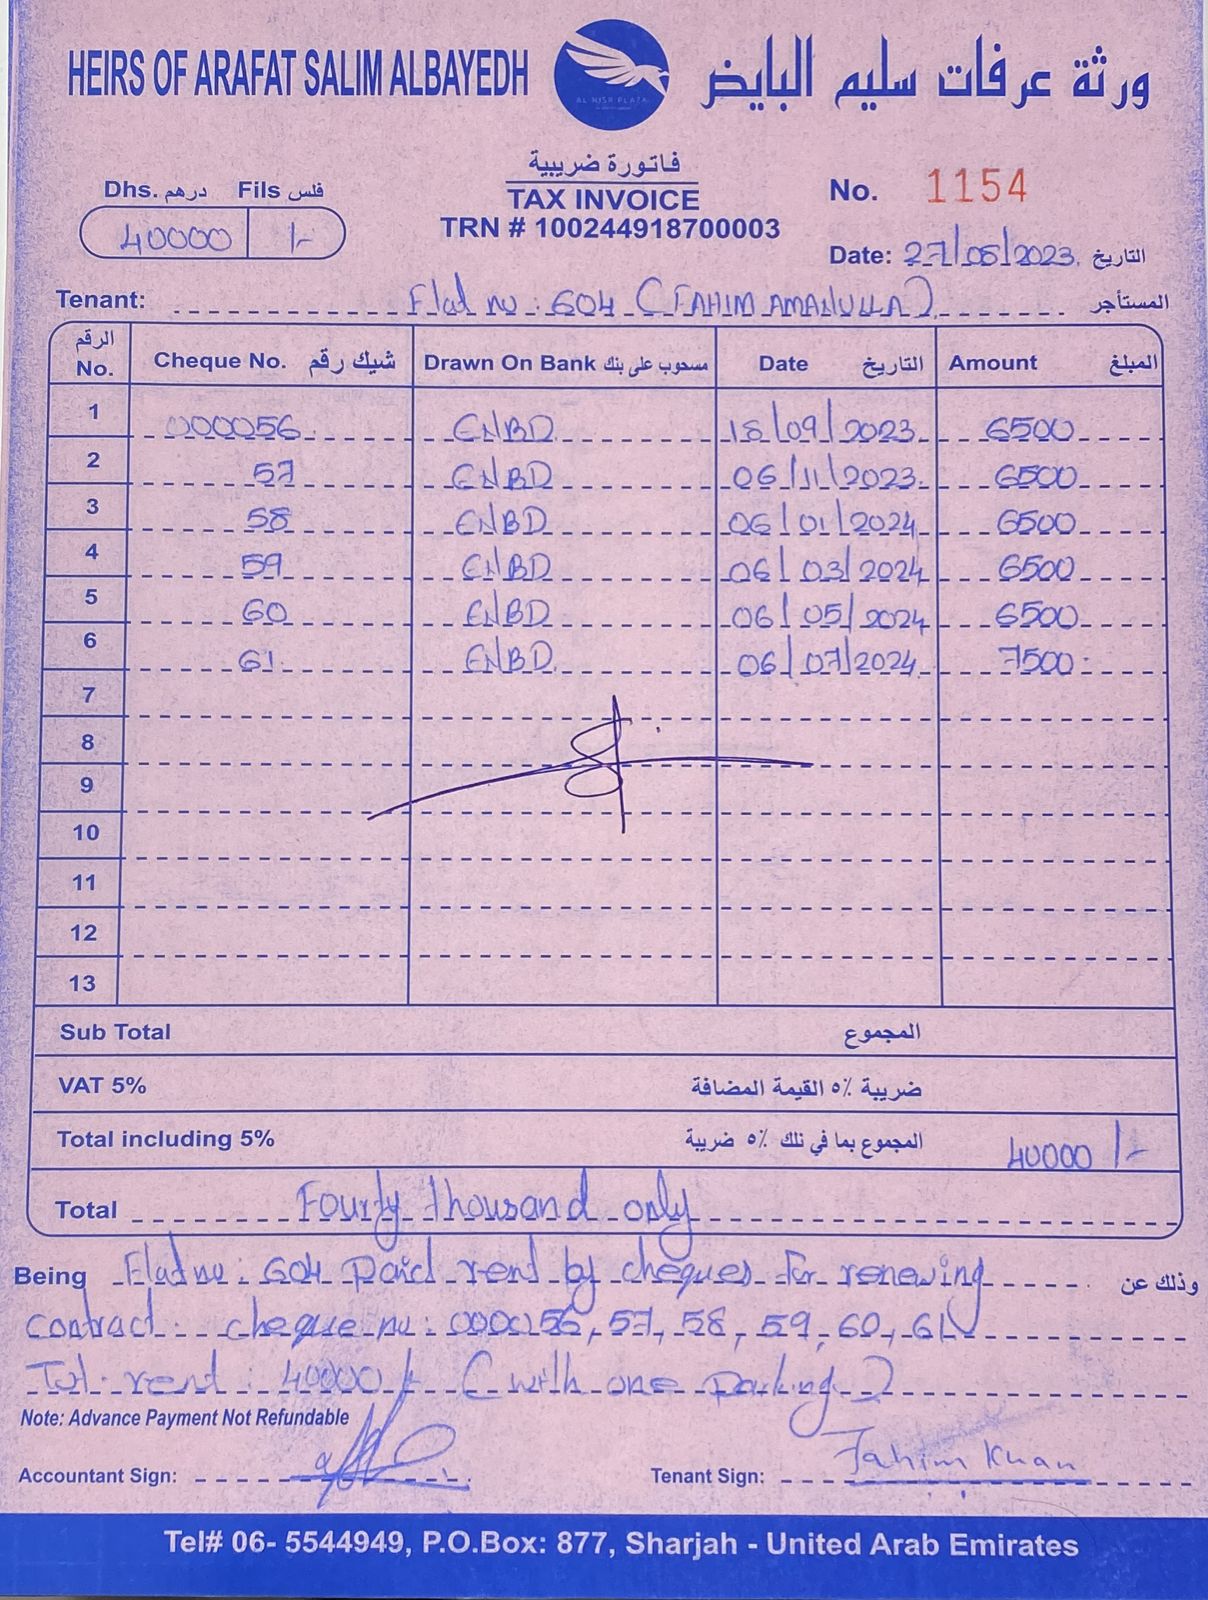 HEIRS OF ARAFAT SALIM ALBAYEDH
AL NISR PLAZA
ورثة عرفات سليم البايض
فاتورة ضريبية
TAX INVOICE
TRN # 100244918700003
Dhs. درهم Fils فلس
40000 /-
No. 1154
Date: 27/05/2023 التاريخ
Tenant: Flat no: 604 (FAHIM AMANULLA) المستأجر
الرقم No. Cheque No. شيك رقم Drawn On Bank مسحوب على بنك Date التاريخ Amount المبلغ
1 000056 ENBD 18/09/2023 6500
2 57 ENBD 06/11/2023 6500
3 58 ENBD 06/01/2024 6500
4 59 ENBD 06/03/2024 6500
5 60 ENBD 06/05/2024 6500
6 61 ENBD 06/07/2024 7500
7
8
9
10
11
12
13
Sub Total المجموع
VAT 5% ضريبة ٥٪ القيمة المضافة
Total including 5% المجموع بما في تلك ٥٪ ضريبة 40000 /-
Total Fourty thousand only
Being Flat no: 604 Paid rent by cheques for renewing وذلك عن
contract. cheque no: 000056, 57, 58, 59, 60, 61
Tot. rent: 40000/- (with one parking)
Note: Advance Payment Not Refundable
Accountant Sign:
Tenant Sign: Fahim Khan
Tel# 06- 5544949, P.O.Box: 877, Sharjah - United Arab Emirates